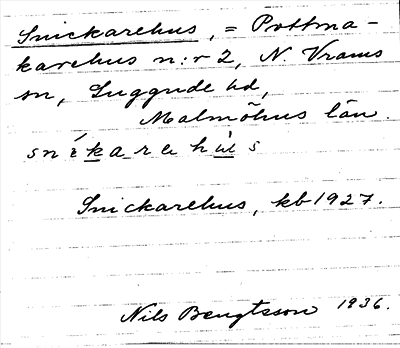 Snickarehus, = Pottma-
karehus n:r 2, N. Vrams
sn, Luggude hd,
Malmöhus län.
snikarehus
Snickarehus, kb 1927.
Nils Bengtsson 1936.